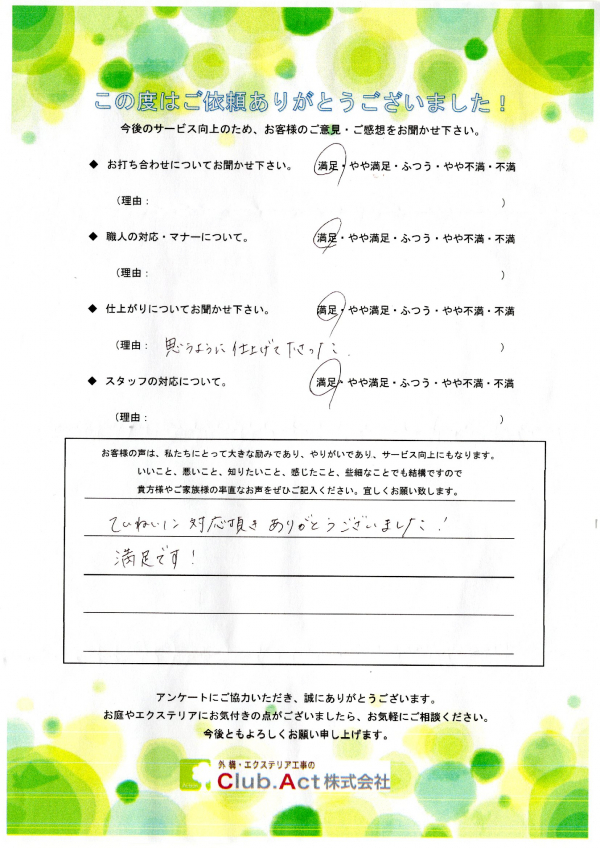 この度はご依頼ありがとうございました！
今後のサービス向上のため、お客様のご意見・ご感想をお聞かせ下さい。
◆ お打ち合わせについてお聞かせ下さい。 満足・やや満足・ふつう・やや不満・不満
（理由： ）
◆ 職人の対応・マナーについて。 満足・やや満足・ふつう・やや不満・不満
（理由： ）
◆ 仕上がりについてお聞かせ下さい。 満足・やや満足・ふつう・やや不満・不満
（理由： 思うように仕上げて下さった。 ）
◆ スタッフの対応について。 満足・やや満足・ふつう・やや不満・不満
（理由： ）
お客様の声は、私たちにとって大きな励みであり、やりがいであり、サービス向上にもなります。
いいこと、悪いこと、知りたいこと、感じたこと、些細なことでも結構ですので
貴方様やご家族様の率直なお声をぜひご記入ください。宜しくお願い致します。
ていねいに対応頂きありがとうございました！
満足です！
アンケートにご協力いただき、誠にありがとうございます。
お庭やエクステリアにお気付きの点がございましたら、お気軽にご相談ください。
今後ともよろしくお願い申し上げます。
外構・エクステリア工事の
Club.Act株式会社